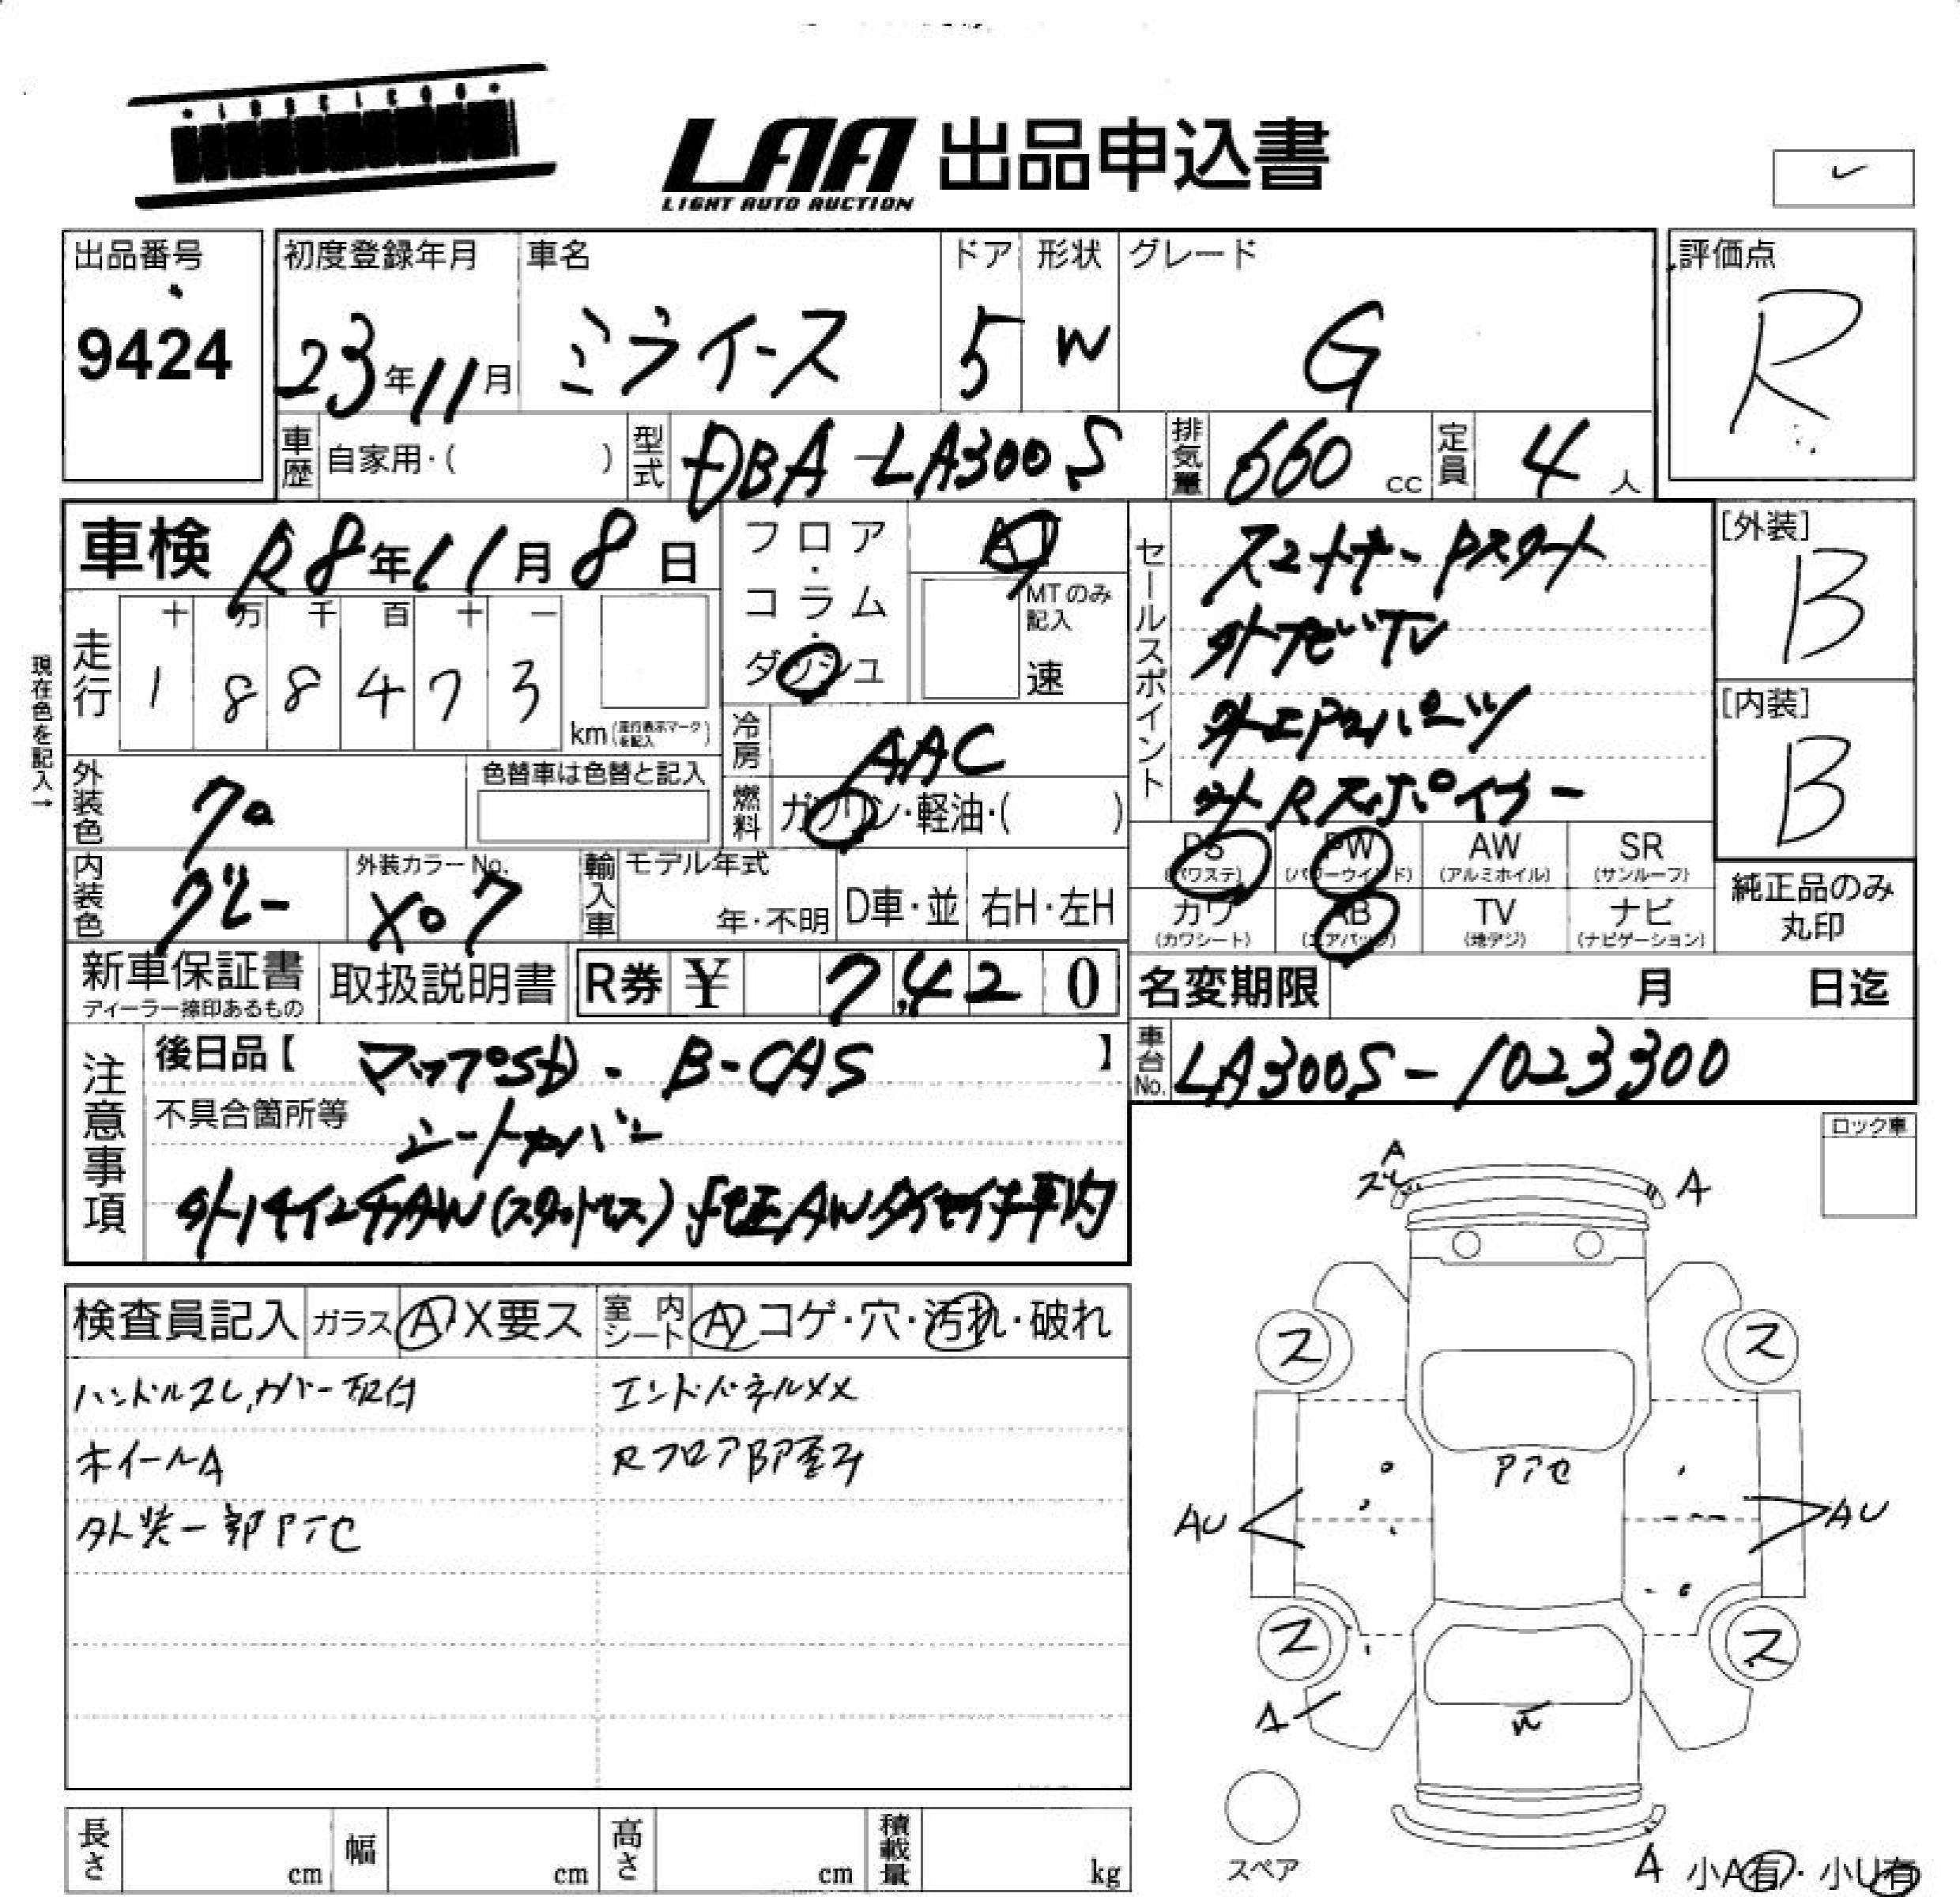 LAA 出品申込書
LIGHT AUTO AUCTION
出品番号
9424
初度登録年月
23年11月
車名
ミライース
ドア
5
形状
W
グレード
G
評価点
R
車歴 自家用・( )
型式 DBA-LA300S
排気量 660 cc
定員 4 人
車検 R8年11月8日
フロア・コラム・ダッシュ
AT
MTのみ記入
速
セールスポイント
スマートキー Pスタート
外ナビTV
外エアロパーツ
外Rスポイラー
[外装]
B
[内装]
B
現在色を記入→
走行
十 万 千 百 十 一
1 8 8 4 7 3
km(走行表示マークを記入)
冷房 AAC
燃料 ガソリン・軽油・( )
外装色 クロ
色替車は色替と記入
内装色 グレー
外装カラーNo.
X07
輸入車
モデル年式
年・不明
D車・並
右H・左H
PS (パワステ)
PW (パワーウインド)
AW (アルミホイル)
SR (サンルーフ)
カワ (カワシート)
AB (エアバッグ)
TV (地デジ)
ナビ (ナビゲーション)
純正品のみ丸印
新車保証書
ディーラー捺印あるもの
取扱説明書
R券 ¥ 7,420
名変期限 月 日迄
注意事項
後日品【 マップSD・B-CAS 】
車台No. LA300S-1023300
不具合箇所等
シートカバー
外14インチAW(スタッドレス)
ロック車
検査員記入
ガラス A X要ス
室内シート A コゲ・穴・汚れ・破れ
ハンドルスレ,カバー取付
エンドパネルXX
ホイールA
Rフロア部歪み
外装一部アセ
A
スレ
A
ス
ス
アセ
AU
AU
ス
ス
A
スペア
A
小A有・小U有
長さ cm
幅 cm
高さ cm
積載量 kg